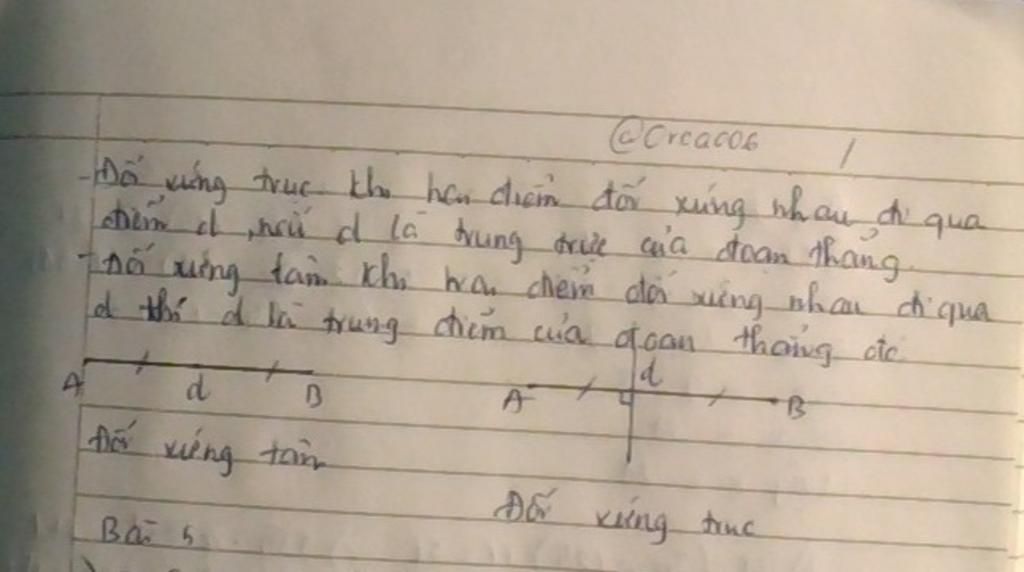 @Crcacob
- Đối xứng trục khi hai điểm đối xứng nhau đi qua
điểm d, nếu d là trung trực của đoạn thẳng.
- Đối xứng tâm khi hai điểm đối xứng nhau đi qua
d thì d là trung điểm của đoạn thẳng đó
A d B
A d B
Đối xứng tâm
Đối xứng trục
Bài 5